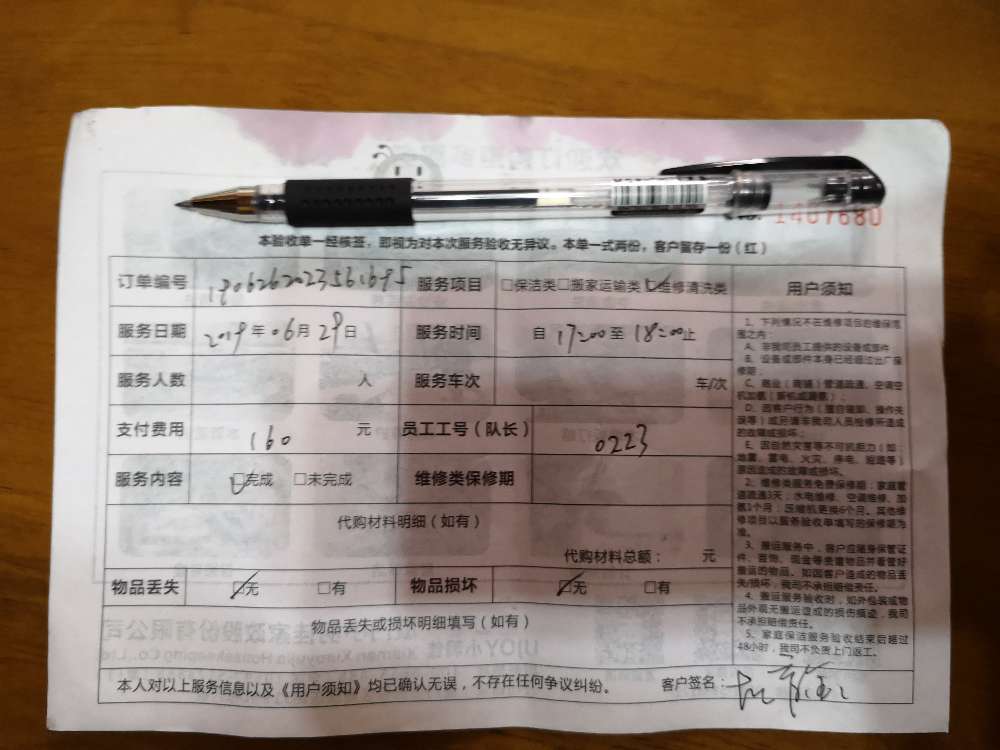 1407680
本验收单一经核签，即视为对本次服务验收无异议。本单一式两份，客户留存一份（红）
订单编号 服务项目 □保洁类□搬家运输类□维修清洗类 用户须知
服务日期 年06月29日 服务时间 自 17:00 至 18:00 止
服务人数 人 服务车次 车/次
支付费用 160 元 员工工号（队长） 0223
服务内容 □完成 □未完成 维修类保修期
代购材料明细（如有）
代购材料总额： 元
物品丢失 □无 □有 物品损坏 □无 □有
物品丢失或损坏明细填写（如有）
本人对以上服务信息以及《用户须知》均已确认无误，不存在任何争议纠纷。 客户签名：
1、下列情况不在维修项目的维保范
围之内：
A、非我司员工提供的设备或部件
B、设备或部件本身已经超过出厂保
修期；
C、商业（商铺）管道疏通、空调空
机加氨（新机或漏氨）；
D、因客户行为（擅自破卸、操作失
误等）或另请非我司人员检修所造成
的故障或损坏；
E、因自然灾害等不可抗拒力（如：
地震、雷电、火灾、停电、短路等）
原因造成的故障或损坏。
2、维修类服务免费保修期：家庭管
道疏通3天；水电维修、空调维修、加
氨1个月；压缩机更换6个月。其他维
修项目以服务验收单填写的保修期为
准。
3、搬运服务中，客户应随身保管证
件、首饰、现金等贵重物品并看管好
搬运的物品，如因客户造成的物品丢
失/损坏，我司不承担赔偿责任。
4、搬运服务验收时，如外包装或物
品外观无搬运造成的损伤痕迹，我司
不承担赔偿责任。
5、家庭保洁服务验收结束后超过
48小时，我司不负责上门返工。